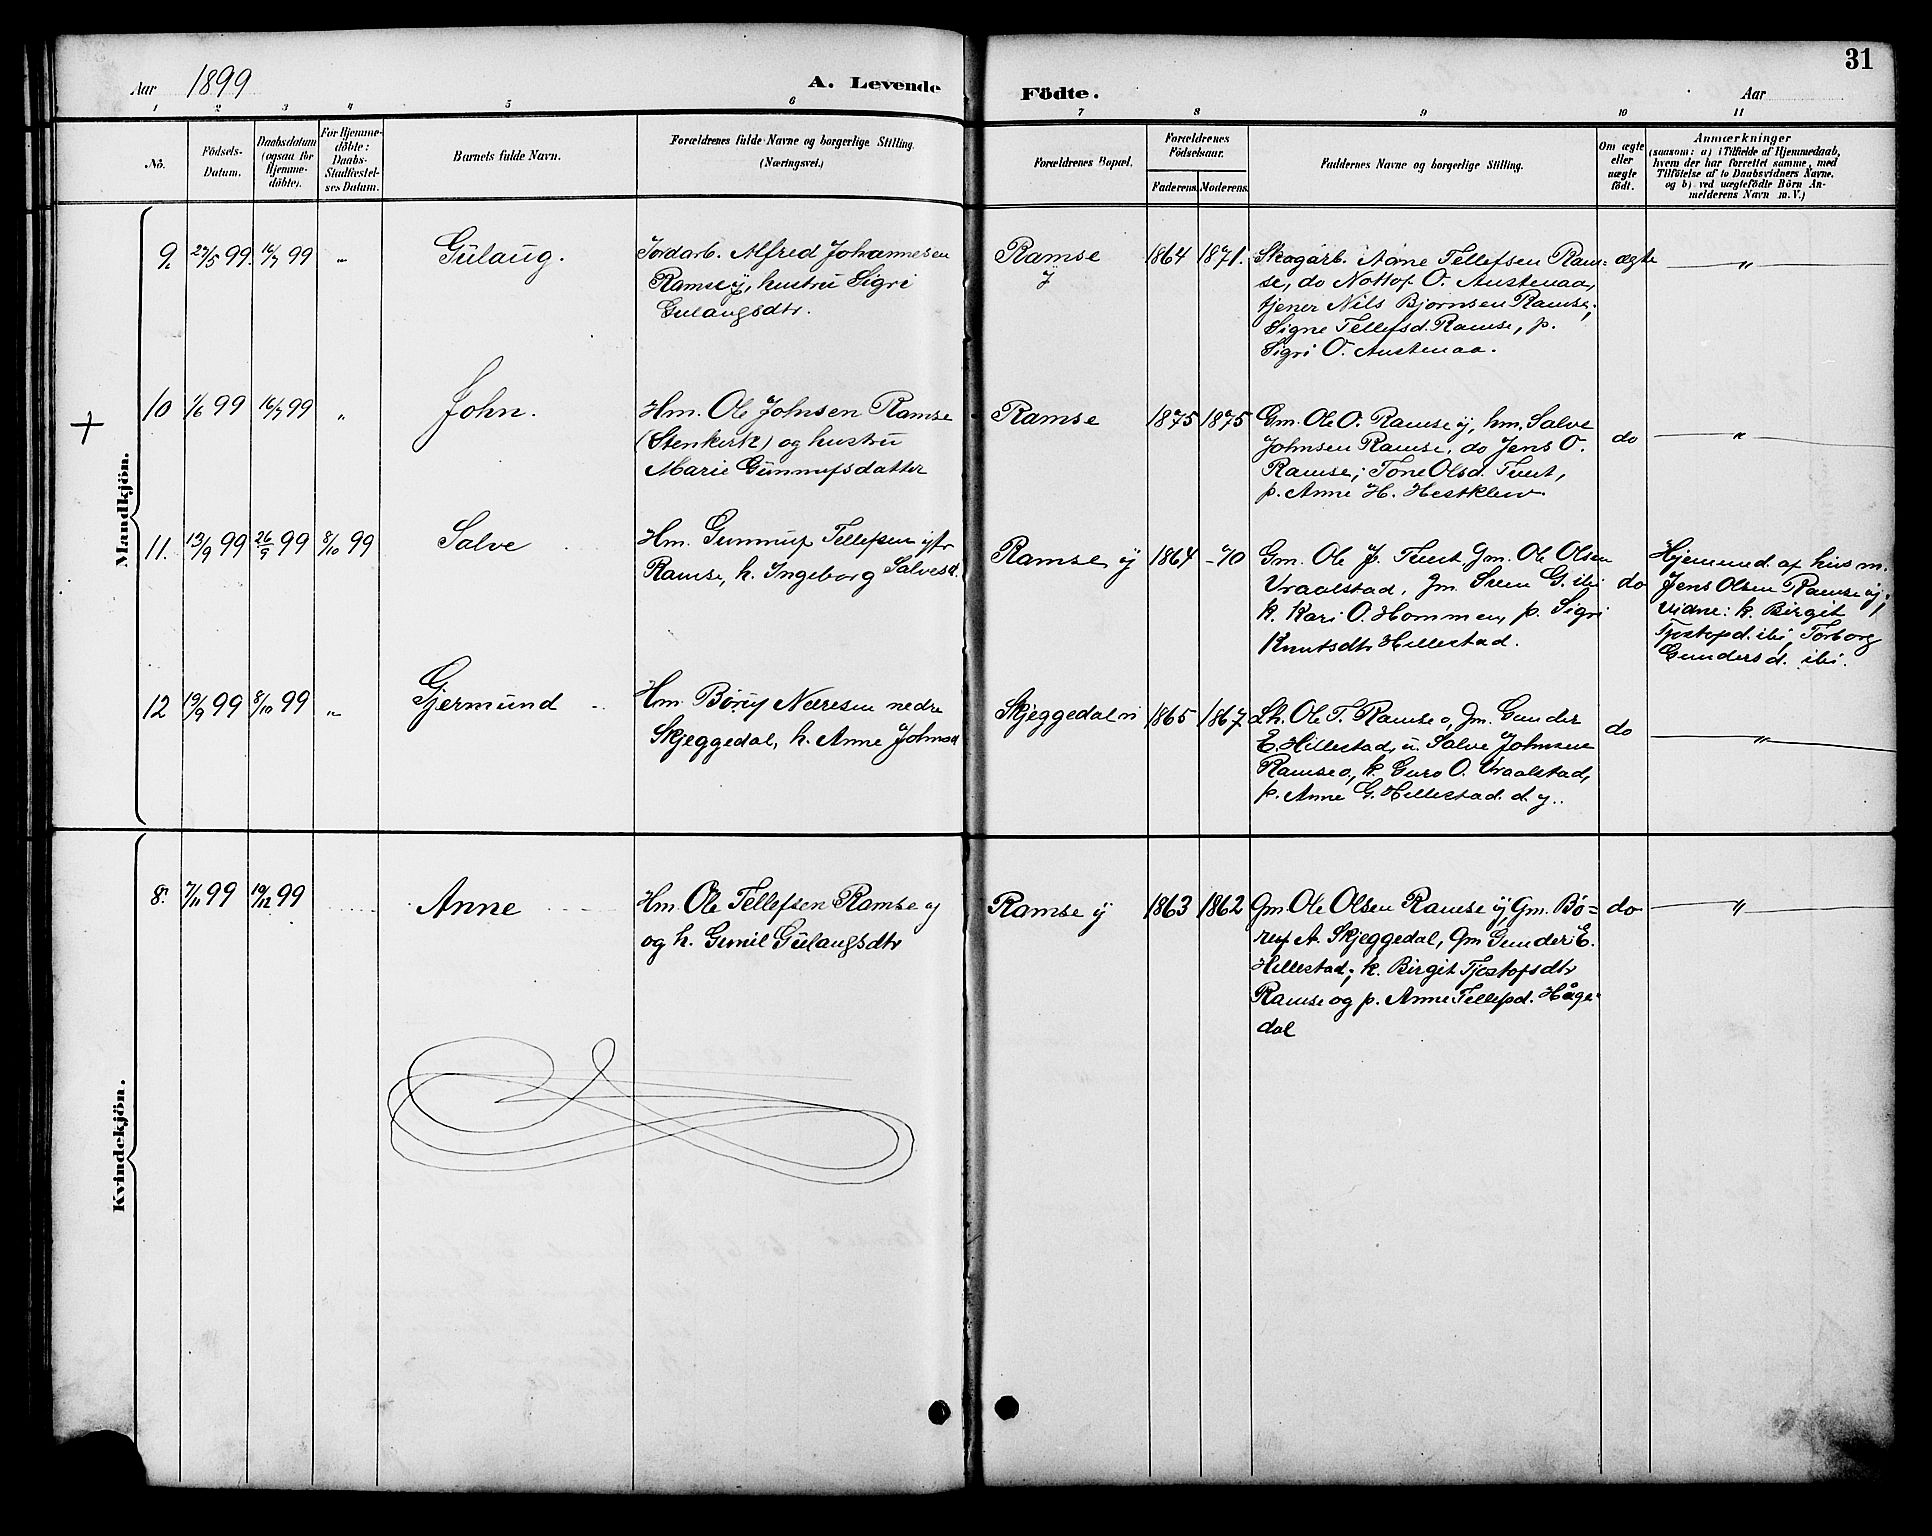 31
Aar 1899 A. Levende Födte. Aar
1 2 3 4 5 6 7 8 9 10 11
No. Födsels-Datum. Daabsdatum (ogsaa for Hjemme-döbte). For Hjemme-döbte: Daabs-Stadfæstel-ses Datum. Barnets fulde Navn. Forældrenes fulde Navne og borgerlige Stilling. (Næringsvei.) Forældrenes Bopæl. Forældrenes Födselsaar. Faderens. Moderens. Faddernes Navne og borgerlige Stilling. Om ægte eller uægte födt. Anmærkninger (saasom: a) i Tilfælde af Hjemmedaab, hvem der har forrettet samme, med Tilföielse af to Daabsvidners Navne. og b) ved uægtefödte Börn An-melderens Navn m. V.)
Mandkjön.
9. 27/5 99. 16/7 99 " Gulaug. Jordarb. Alfred Johannesen Ramse y 1864 1871. Skogarb. Aane Tellefsen Ram= ægte "
Ramse y, hustru Sigri se, do Nottof O. Austenaa,
Gulaugsdtr. tjener Nils Bjornsen Ramse;
Signe Tellefsd. Ramse, p.
Sigri O. Austenaa.
+ 10 1/6 99 16/7 99 " John. Hm. Ole Johnsen Ramse Ramse 1875 1875 Gm. Ole O. Ramse y, hm. Salve do "
(Stenkirk) og hustru Johnsen Ramse, do Jens O.
Marie Gunnufsdatter Ramse; Tone Olsd. Tveit,
p. Anne H. Hestklew
11. 13/9 99 26/9 99 8/10 99 Salve Hm. Gunnuf Tellefsen ytr Ramse y 1864 -70 Gm. Ole J. Tveit, Gm. Ole Olsen do Hjemmed af husm.
Ramse, h. Ingeborg Salvesd. Uraalstad, gm. Sven G. ibi Jens Olsen Ramse y;
k. Kari O. Hommen, p. Sigri vidne: k. Birgit
Knutsdtr Hillestad. Tjostofsd. ibi, Torborg
Gundersd. ibi.
12 19/9 99 8/10 99 " Gjermund Hm. Børuf Næresen nedre Skjeggedal n 1865 1867 Lh. Ole T. Ramse o, Gm. Gunder do "
Skjeggedal, h. Anne Johnsd E. Hillestad, u. Salve Johnsen
Ramse o, k. Guro O. Uraalstad,
p. Anne G. Hillestad. d. y.
Kvindekjön.
8. 7/11 99 10/12 99 Anne Hm. Ole Tellefsen Ramse y Ramse y 1863 1862 Gm. Ole Olsen Ramse y, Gm. Bø= do "
og h. Gunil Gulaugsdtr ruf A. Skjeggedal, Gm Gunder E.
Hillestad; k. Birgit Tjostofsdtr
Ramse og p. Anne Tellefsd. Håge-
dal